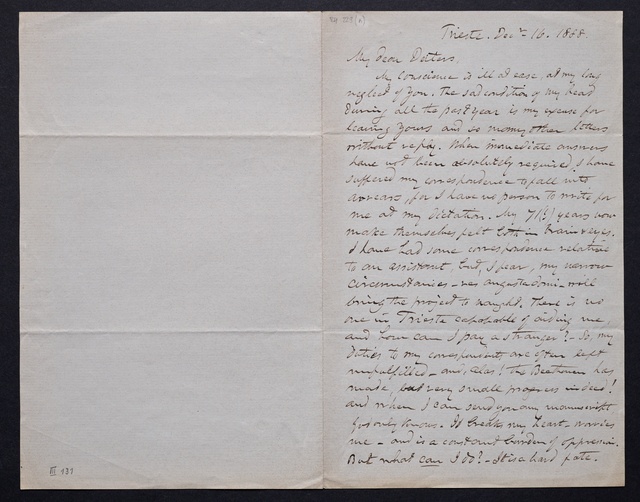 Trieste. Decr 16. 1888.
My dear Deiters,
My conscience is ill at ease, at my long
neglect of you. The sad condition of my head
during all the past year is my excuse for
leaving yours and so many other letters
without reply. When immediate answers
have not been absolutely required, I have
suffered my correspondence to fall into
arrears, for I have no person to write for
me at my dictation. My 71(!) years now
make themselves felt both in brain & eyes.
I have had some correspondence relative
to an assistant, but, I fear, my narrow
circumstances – res angusta domi – will
bring the project to naught. There is no
one in Trieste capable of aiding me,
and how can I pay a stranger? – So, my
duties to my correspondents are often left
unfulfilled – and, alas! the Beethoven has
made, but very small progress indeed!
and when I can send you any manuscript
God only knows. It breaks my heart – worries
me – and is a constant burden of oppression.
But what can I do? – It is a hard fate.
III 139